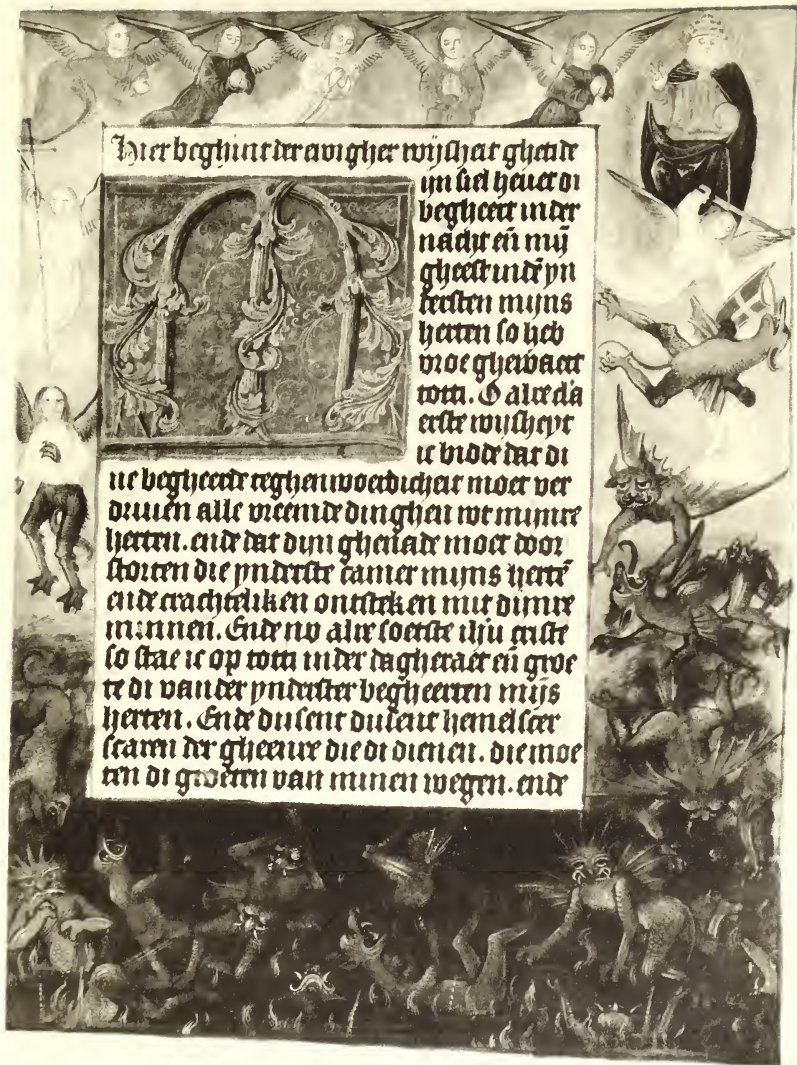 Hier beghint der ewigher wijsheit ghetide
M
ijn siel heuet di
begheert inder
nacht eñ mij
gheest indē yn
reesten mijns
herten so heb
vroe ghewaect
totti. O alre d'a
erste wijsheyt
ic bidde dat di
ne begheerde teghenwoerdicheit moet ver
driuen alle vreemde dinghen wt mijnre
herten. ende dat dijn ghenade moet door
storten die ynderste camer mijns hertē
ende crachteliken ontsteken mit dijnre
minnen. Ende nv alre soetste ihū criste
so stae ic op totti inder dagheraet eñ groe
te di vander ynderster begheerten mijs
herten. Ende dusent dusent hemelscer
scaren der gheenre die di dienen. die moe
ten di groeten van minen wegen. ende